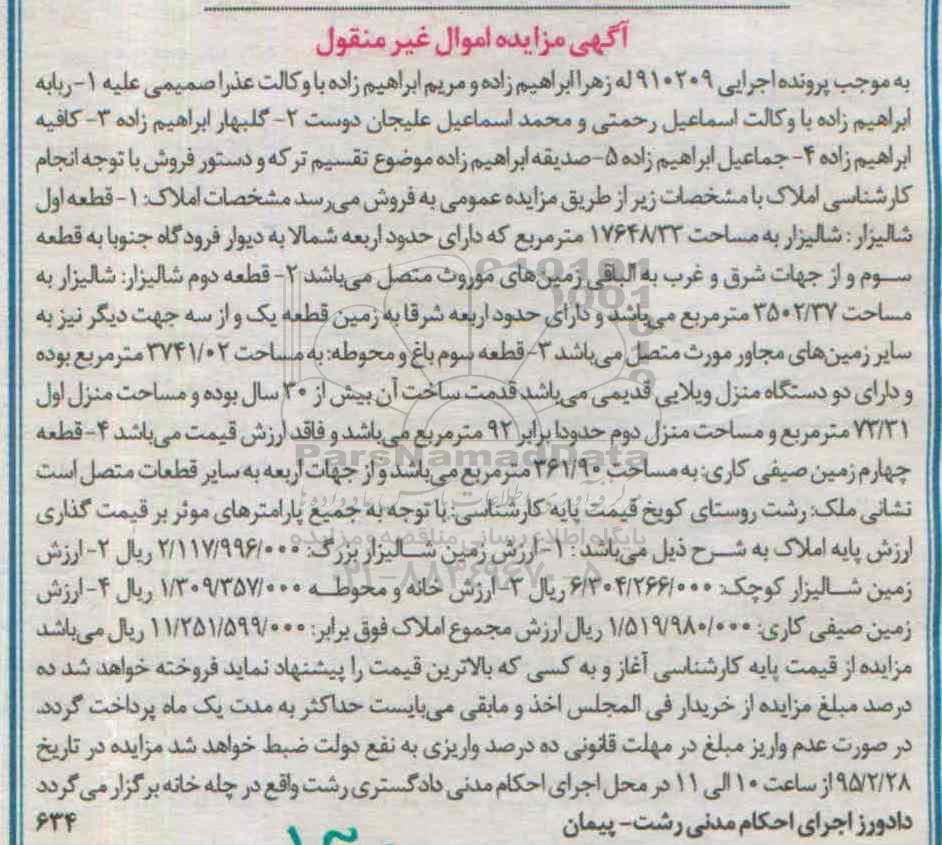 آگهی مزایده اموال غیر منقول
به موجب پرونده اجرایی ۹۱۰۲۰۹ له زهرا ابراهیم زاده و مریم ابراهیم زاده با وکالت عذرا صمیمی علیه ۱- ربابه
ابراهیم زاده با وکالت اسماعیل رحمتی و محمد اسماعیل علیجان دوست ۲- گلبهار ابراهیم زاده ۳- کافیه
ابراهیم زاده ۴- جماعیل ابراهیم زاده ۵- صدیقه ابراهیم زاده موضوع تقسیم ترکه و دستور فروش با توجه انجام
کارشناسی املاک با مشخصات زیر از طریق مزایده عمومی به فروش می‌رسد مشخصات املاک: ۱- قطعه اول
شالیزار: شالیزار به مساحت ۱۷۶۴۸/۳۳ مترمربع که دارای حدود اربعه شمالا به دیوار فرودگاه جنوبا به قطعه
سوم و از جهات شرق و غرب به الباقی زمین‌های موروث متصل می‌باشد ۲- قطعه دوم شالیزار: شالیزار به
مساحت ۳۵۰۲/۳۷ مترمربع می‌باشد و دارای حدود اربعه شرقا به زمین قطعه یک و از سه جهت دیگر نیز به
سایر زمین‌های مجاور مورث متصل می‌باشد ۳- قطعه سوم باغ و محوطه: به مساحت ۳۷۴۱/۰۲ مترمربع بوده
و دارای دو دستگاه منزل ویلایی قدیمی می‌باشد قدمت ساخت آن بیش از ۳۰ سال بوده و مساحت منزل اول
۷۳/۳۱ مترمربع و مساحت منزل دوم حدودا برابر ۹۲ مترمربع می‌باشد و فاقد ارزش قیمت می‌باشد ۴- قطعه
چهارم زمین صیفی کاری: به مساحت ۳۶۱/۹۰ مترمربع می‌باشد و از جهات اربعه به سایر قطعات متصل است
نشانی ملک: رشت روستای کویخ قیمت پایه کارشناسی: با توجه به جمیع پارامترهای موثر بر قیمت گذاری
ارزش پایه املاک به شرح ذیل می‌باشد: ۱- ارزش زمین شالیزار بزرگ: ۲/۱۱۷/۹۹۶/۰۰۰ ریال ۲- ارزش
زمین شالیزار کوچک: ۶/۳۰۴/۲۶۶/۰۰۰ ریال ۳- ارزش خانه و محوطه ۱/۳۰۹/۳۵۷/۰۰۰ ریال ۴- ارزش
زمین صیفی کاری: ۱/۵۱۹/۹۸۰/۰۰۰ ریال ارزش مجموع املاک فوق برابر: ۱۱/۲۵۱/۵۹۹/۰۰۰ ریال می‌باشد
مزایده از قیمت پایه کارشناسی آغاز و به کسی که بالاترین قیمت را پیشنهاد نماید فروخته خواهد شد ده
درصد مبلغ مزایده از خریدار فی المجلس اخذ و مابقی می‌بایست حداکثر به مدت یک ماه پرداخت گردد.
در صورت عدم واریز مبلغ در مهلت قانونی ده درصد واریزی به نفع دولت ضبط خواهد شد مزایده در تاریخ
۹۵/۲/۲۸ از ساعت ۱۰ الی ۱۱ در محل اجرای احکام مدنی دادگستری رشت واقع در چله خانه برگزار می گردد
دادورز اجرای احکام مدنی رشت- پیمان ۶۳۴
ParsNamadData
پایگاه اطلاع رسانی مناقصه و مزایده